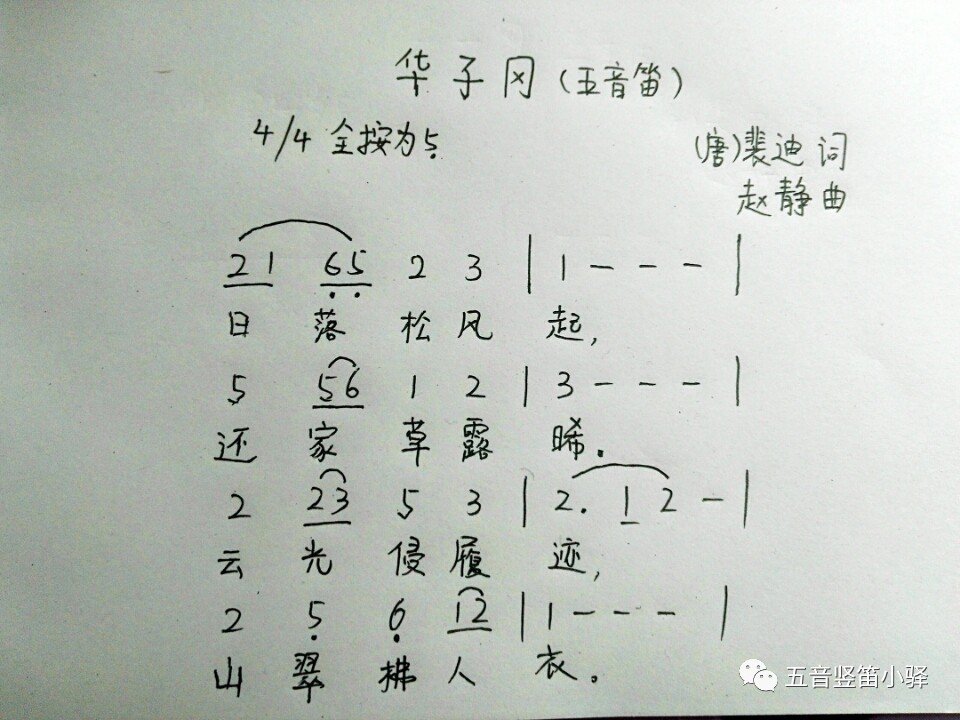 华子冈(五音笛)
4/4 全按为5̣
(唐)裴迪 词
赵静曲
21 6̣5̣ 2 3 | 1 - - - |
日 落 松 风 起,
5 56 1 2 | 3 - - - |
还 家 草 露 晞.
2 23 5 3 | 2. 1 2 - |
云 光 侵 履 迹,
2 5̣ 6̣ 12 | 1 - - - |
山 翠 拂 人 衣.
五音竖笛小驿